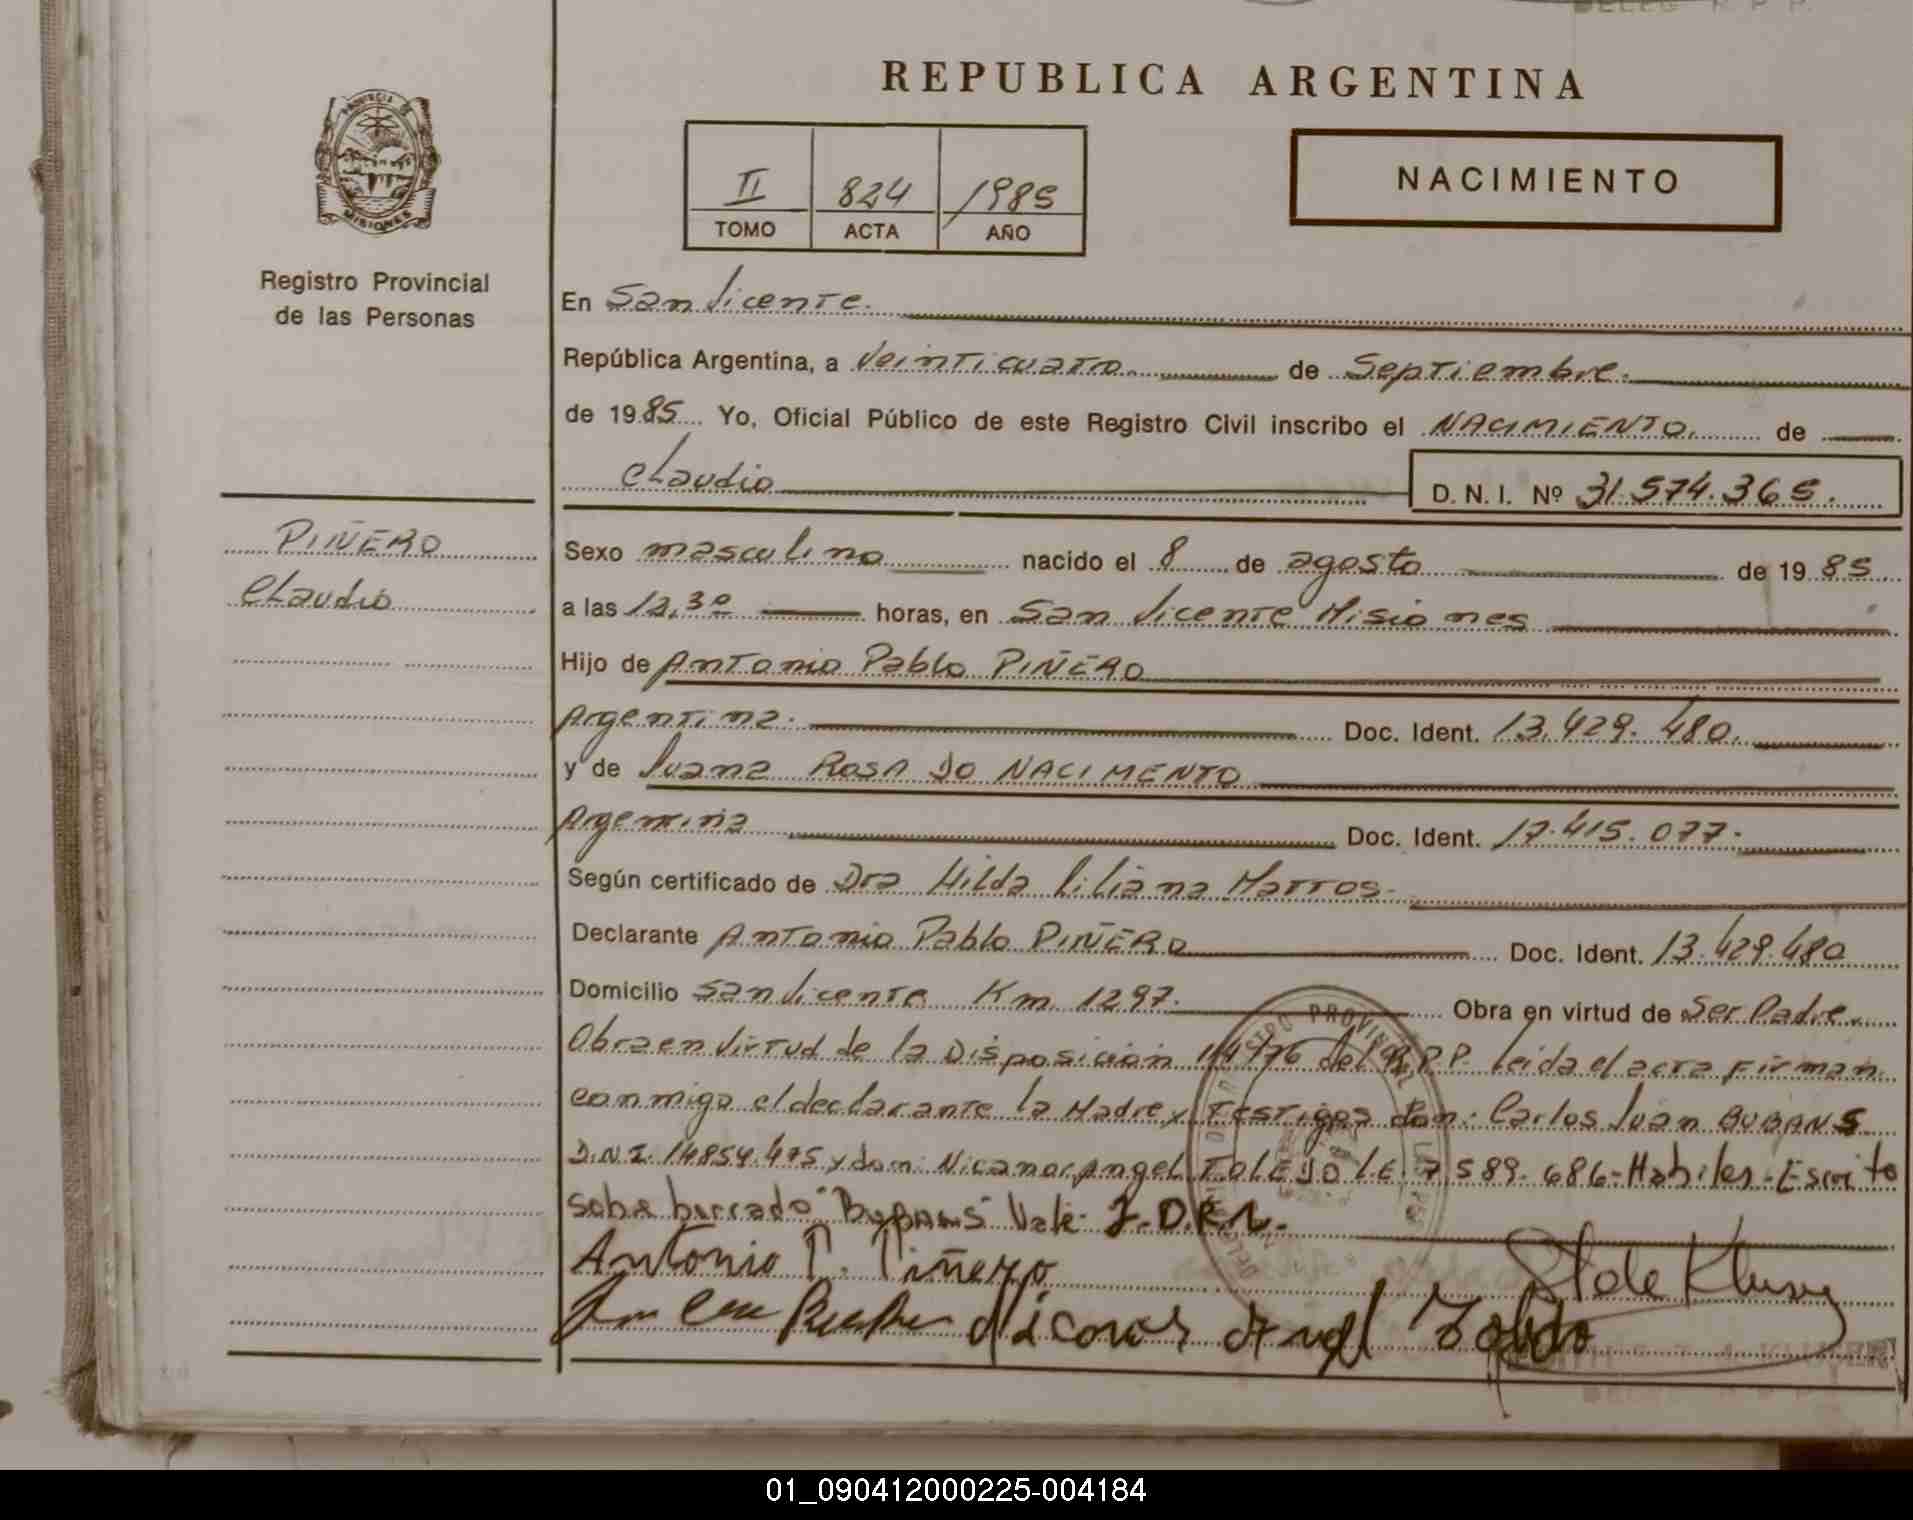 REPUBLICA ARGENTINA
PROVINCIA DE
MISIONES
Registro Provincial
de las Personas
II 824 1985
TOMO ACTA AÑO
NACIMIENTO
En San Vicente.
República Argentina, a Veinticuatro. de Septiembre.
de 1985 Yo, Oficial Público de este Registro Civil inscribo el NACIMIENTO. de
Claudio
D. N. I. Nº 31.574.365.
PIÑERO
Claudio
Sexo masculino nacido el 8 de agosto de 1985
a las 12,30 horas, en San Vicente Misiones
Hijo de Antonio Pablo PIÑERO
Argentina. Doc. Ident. 13.429.480.
y de Juana ROSA DO NACIMENTO
Argentina Doc. Ident. 17.415.077.
Según certificado de Dra Hilda Liliana Mattos.
Declarante Antonio Pablo PIÑERO Doc. Ident. 13.429.480
Domicilio San Vicente Km 1297. Obra en virtud de Ser Padre.
Obra en virtud de la Disposición 14/76 del R.P.P. Leida el acta Firman
conmigo el declarante la Madre y Testigos don: Carlos Juan BUBANS
D.N.I. 14854.475 y don: Nicanor Angel TOLEDO L.E. 7.589.686-Habiles-Escrito
sobre borrado "BUBANS" Vale.
Antonio P. Piñero
Nicanor Angel Toledo
01_090412000225-004184